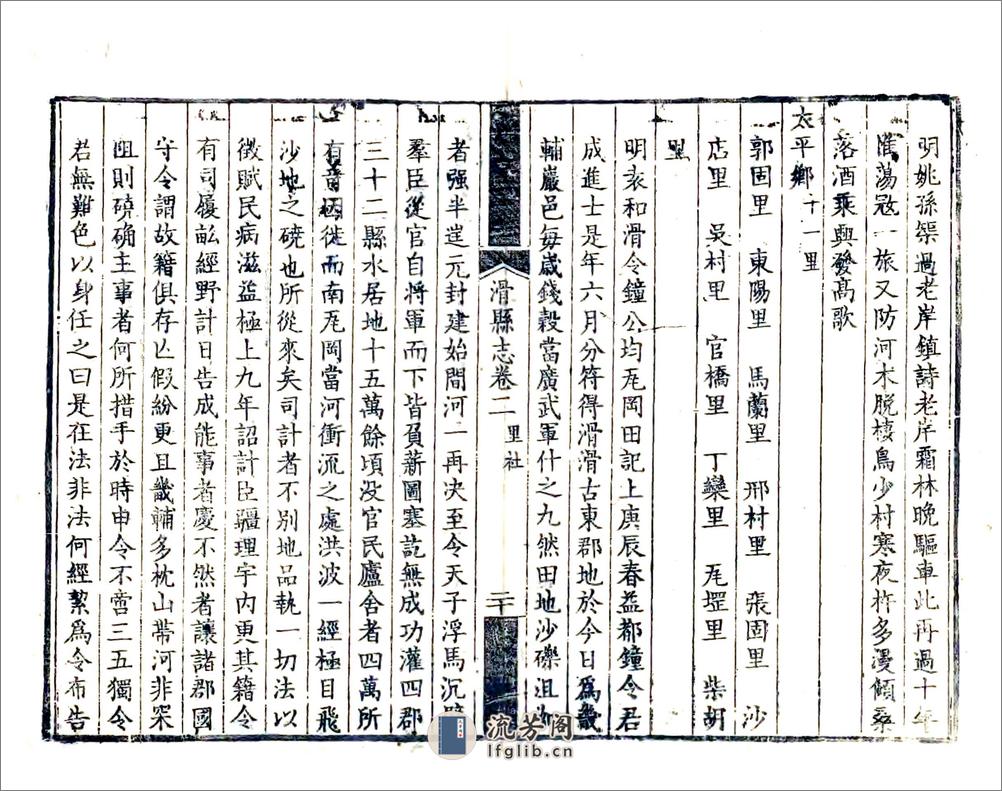 明姚孫榘過老岸鎮詩老岸霜林晚驅車此再過十年
淮蕩冦一旅又防河木脫棲鳥少村寒夜柝多漫傾桑
落酒乘興發高歌
太平鄉十一里
郭固里 東陽里 馬蘭里 邢村里 張固里 沙
店里 吳村里 官橋里 丁欒里 厐堽里 柴胡
里
明袁和滑令鐘公均厐岡田記上庚辰春益都鐘令君
成進士是年六月分符得滑滑古東郡地於今日爲畿
輔巖邑每歲錢穀當廣武軍什之九然田地沙礫沮洳
滑縣志卷二 里社 二十
者强半逹元封建始間河一再决至令天子浮馬沉璧
羣臣從官自將軍而下皆負薪圖塞訖無成功灌四郡
三十二縣水居地十五萬餘頃没官民廬舍者四萬所
有音極徙而南厐岡當河衝流之處洪波一經極目飛
沙地之磽也所從來矣司計者不别地品執一切法以
徴賦民病滋益極上九年詔計臣疆理宇内更其籍令
有司履畝經野計日告成能事者慶不然者讓諸郡國
守令謂故籍俱存亾假紛更且畿輔多枕山帶河非罙
阻則磽确主事者何所措手於時申令不啻三五獨令
君無難色以身任之曰是在法非法何經絜爲令布告
流芳阁
lfglib.cn